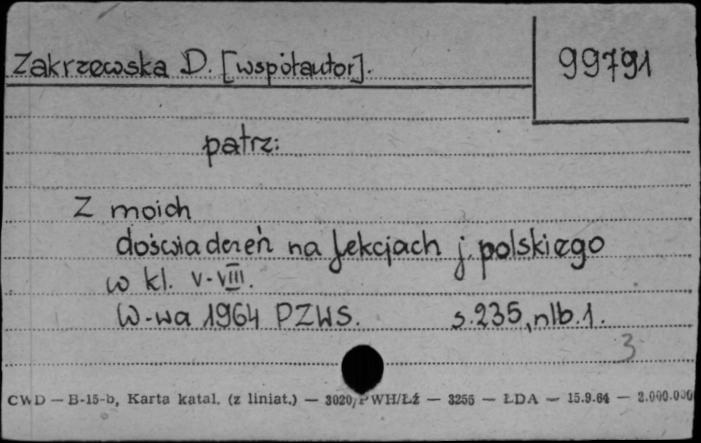 Zakrzewska D. [współautor].
99791
patrz:
Z moich
doświadczeń na lekcjach j. polskiego
w kl. V-VIII.
W-wa 1964 PZWS. s.235, nlb.1.
3
CWD — B-15-b, Karta katal. (z liniat.) — 3020/PWH/Łź — 3256 — ŁDA — 15.9.64 — 2.000.000